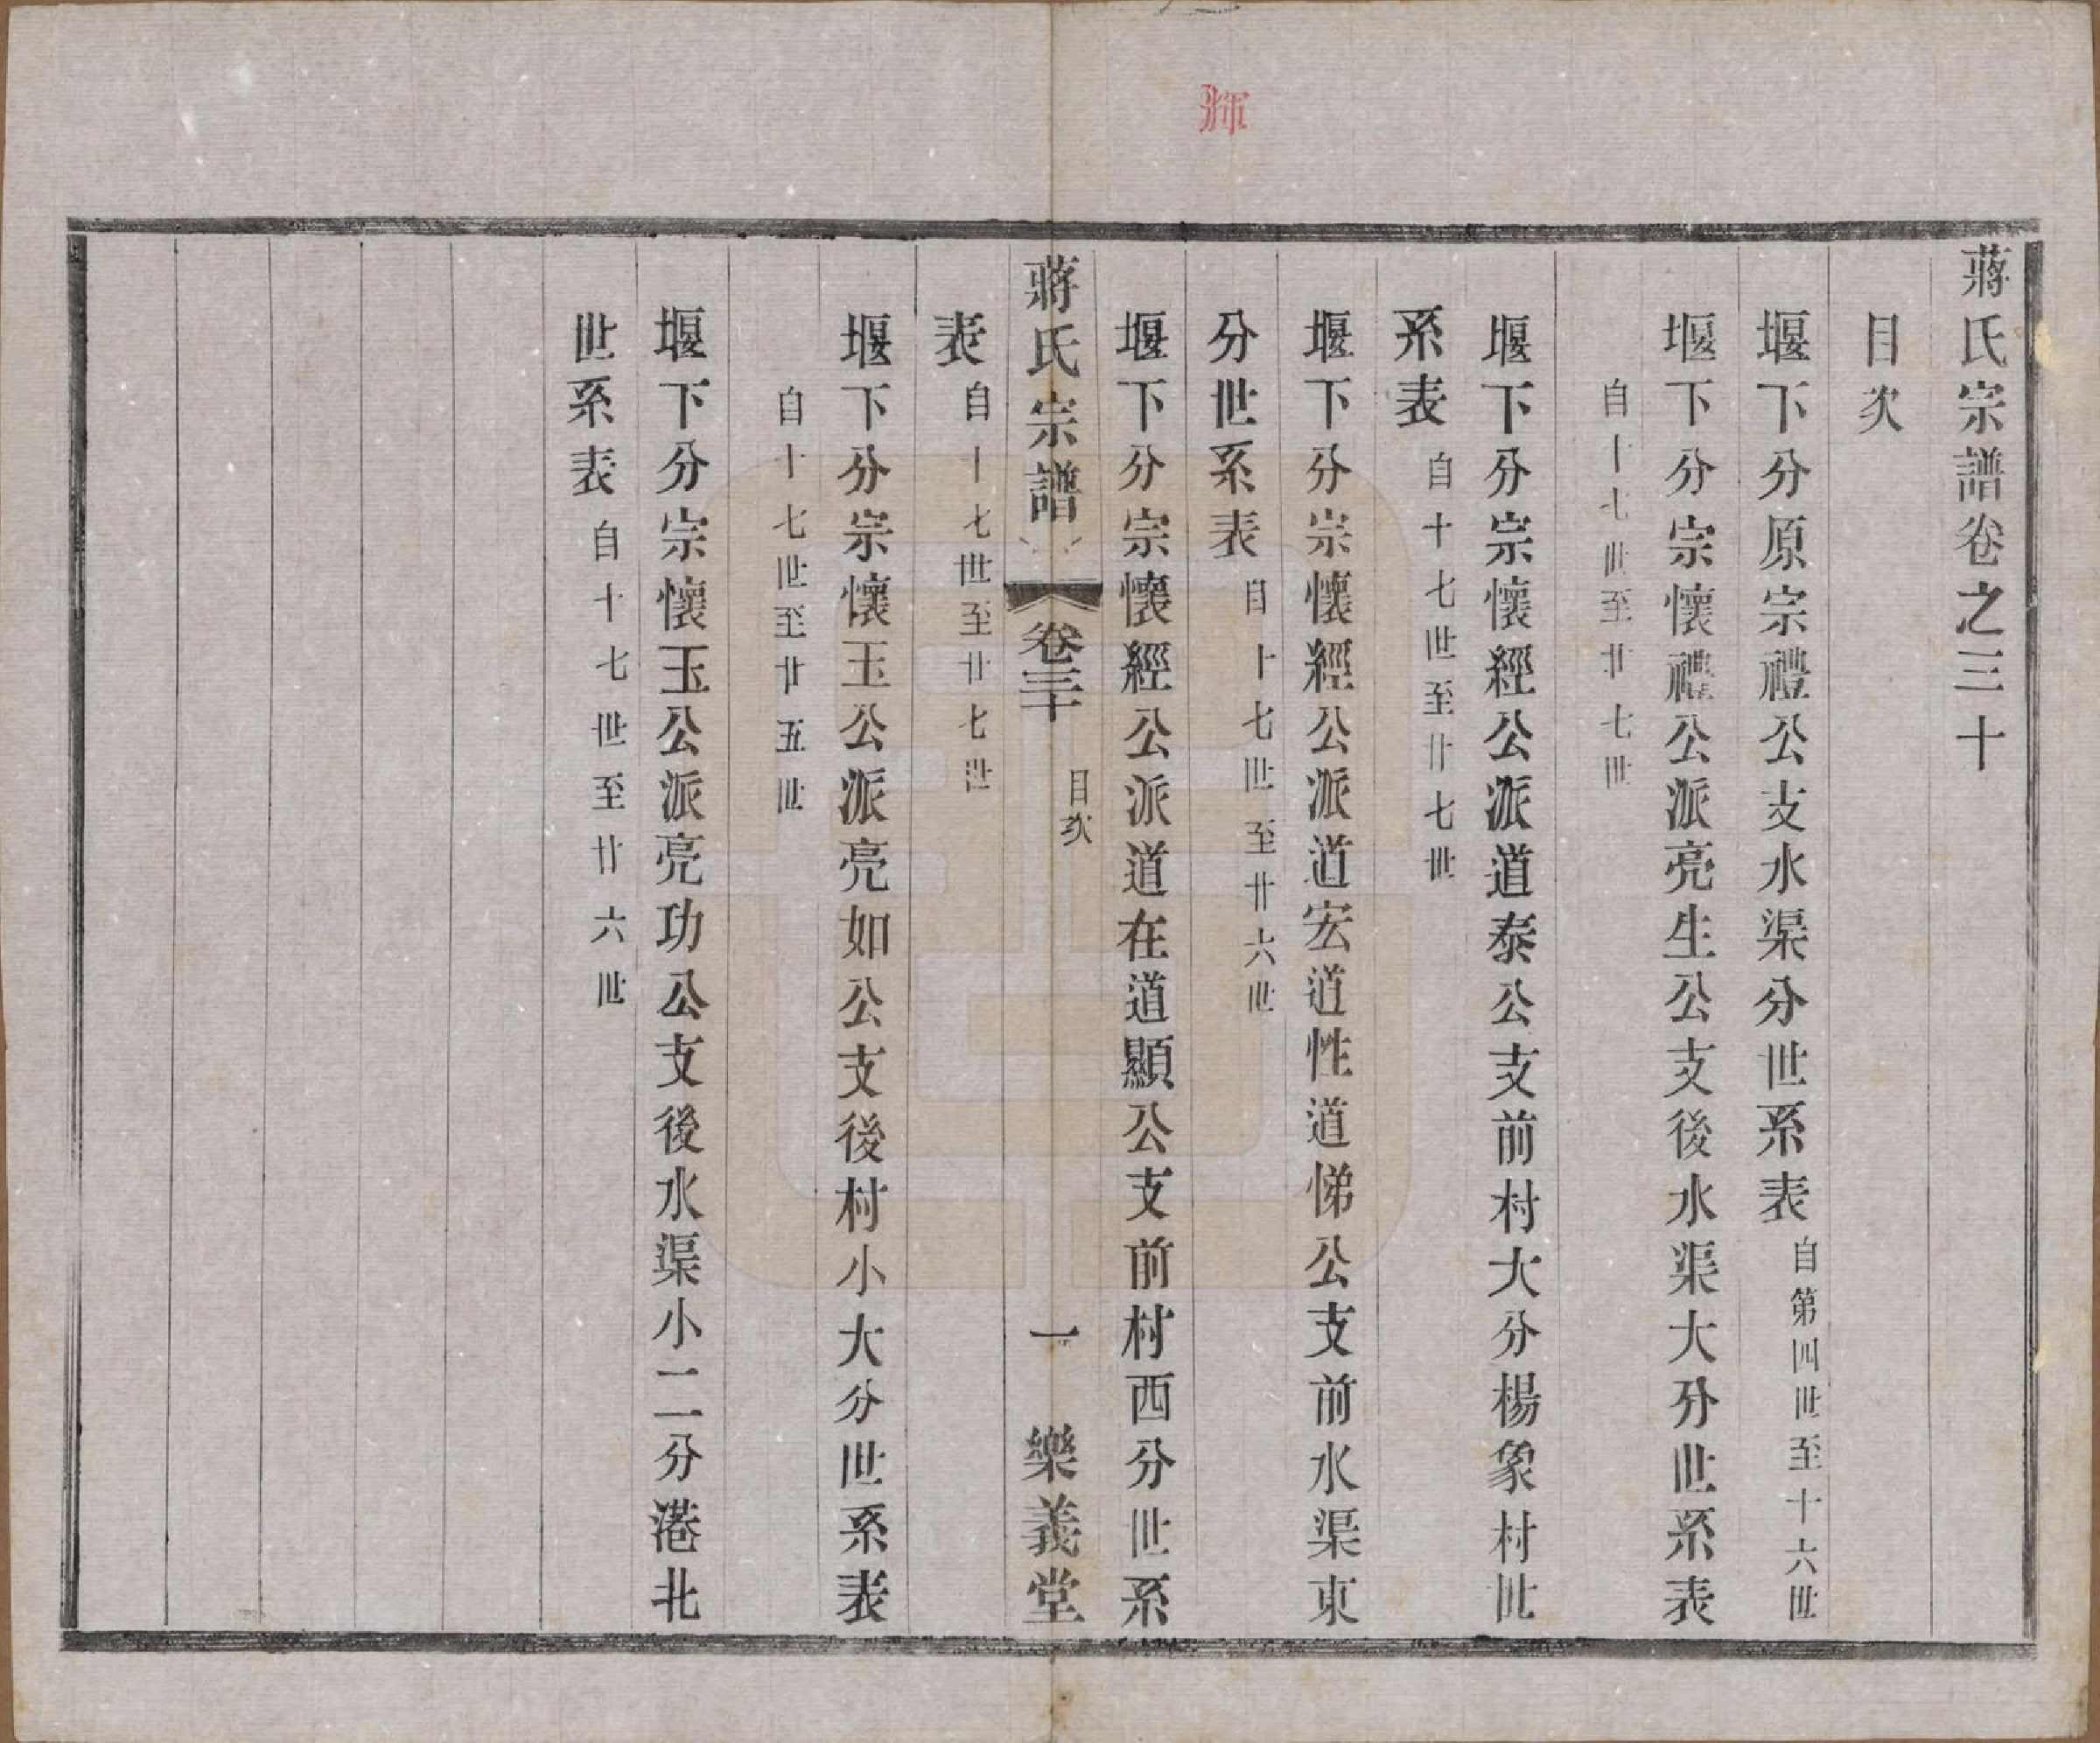 蔣氏宗譜卷之三十
目次
堰下分原宗禮公支水渠分世系表自第四世至十六世
堰下分宗懷禮公派亮生公支後水渠大分世系表
自十七世至廿七世
堰下分宗懷經公派道泰公支前村大分楊象村世
系表自十七世至廿七世
堰下分宗懷經公派道宏道性道悌公支前水渠東
分世系表自十七世至廿六世
堰下分宗懷經公派道在道顯公支前村西分世系
蔣氏宗譜 卷三十 目次 一 樂義堂
表自十七世至廿七世
堰下分宗懷玉公派亮如公支後村小大分世系表
自十七世至廿五世
堰下分宗懷玉公派亮功公支後水渠小二分港北
世系表自十七世至廿六世